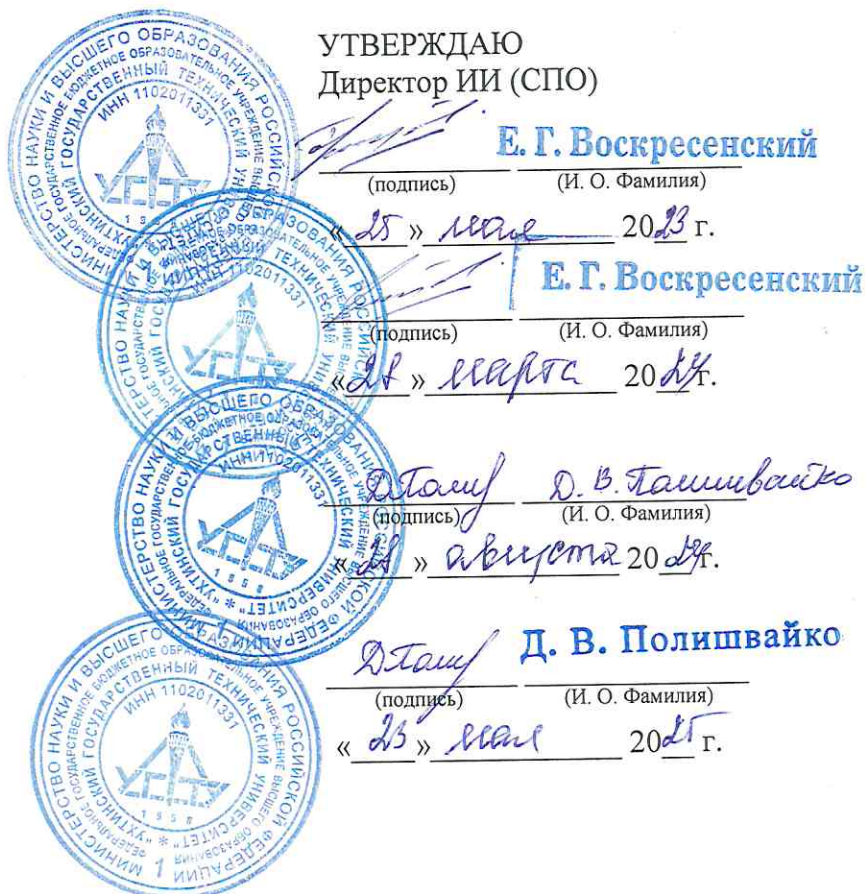 УТВЕРЖДАЮ
Директор ИИ (СПО)
Е. Г. Воскресенский
(подпись) (И. О. Фамилия)
« 25 » мая 2023 г.
Е. Г. Воскресенский
(подпись) (И. О. Фамилия)
« 28 » марта 2024 г.
Д. В. Полишвайко
(подпись) (И. О. Фамилия)
« 28 » августа 2024 г.
Д. В. Полишвайко
(подпись) (И. О. Фамилия)
« 23 » мая 2025 г.
МИНИСТЕРСТВО НАУКИ И ВЫСШЕГО ОБРАЗОВАНИЯ РОССИЙСКОЙ ФЕДЕРАЦИИ 1
ФЕДЕРАЛЬНОЕ ГОСУДАРСТВЕННОЕ БЮДЖЕТНОЕ ОБРАЗОВАТЕЛЬНОЕ УЧРЕЖДЕНИЕ ВЫСШЕГО ОБРАЗОВАНИЯ
"УХТИНСКИЙ ГОСУДАРСТВЕННЫЙ ТЕХНИЧЕСКИЙ УНИВЕРСИТЕТ" *
ИНН 1102011331
УГТУ
1958